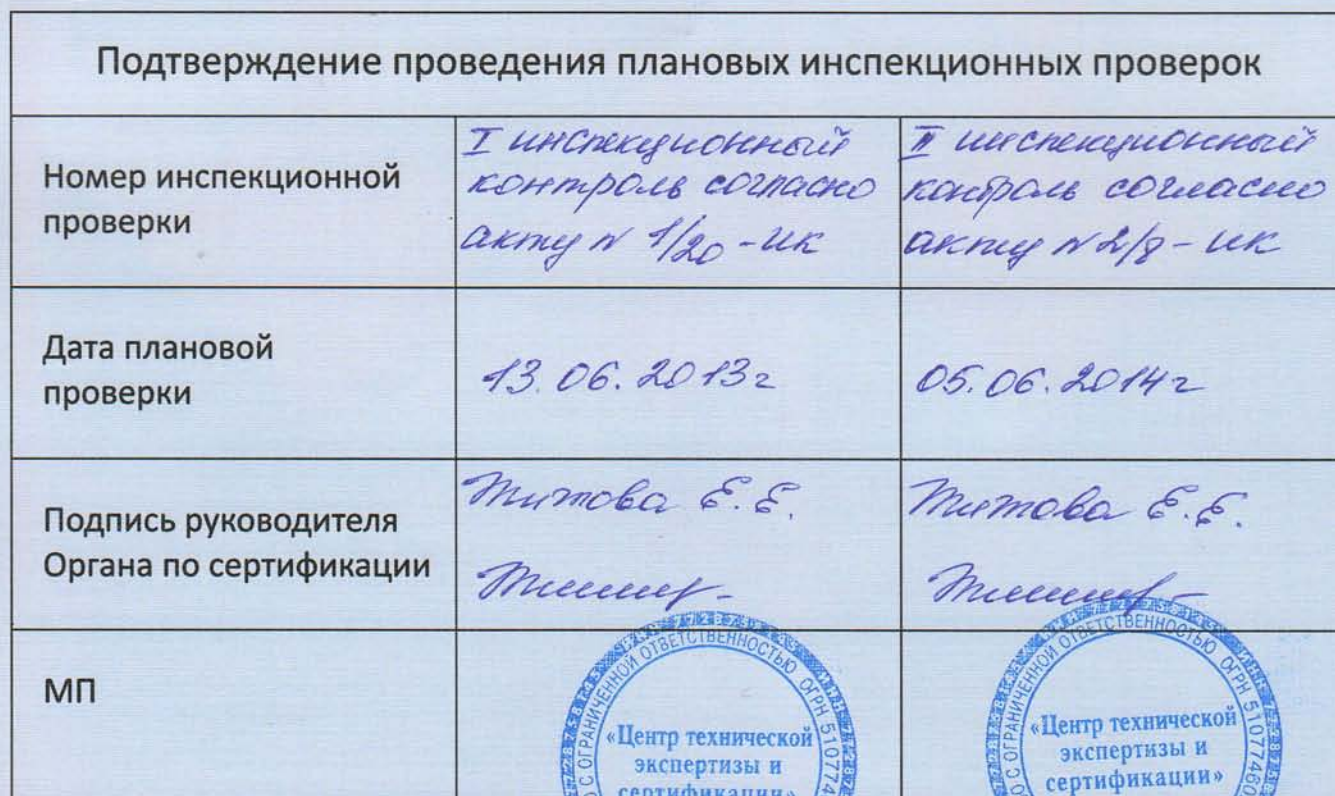 Подтверждение проведения плановых инспекционных проверок
Номер инспекционной
проверки
I инспекционный
контроль согласно
акту № 1/20 - ИК
II инспекционный
контроль согласно
акту № 2/8 - ИК
Дата плановой
проверки
13.06.2013г
05.06.2014г
Подпись руководителя
Органа по сертификации
Титова Е.Е.
Титова Е.Е.
МП
С ОГРАНИЧЕННОЙ ОТВЕТСТВЕННОСТЬЮ ОГРН 510774
«Центр технической
экспертизы и
сертификации»
С ОГРАНИЧЕННОЙ ОТВЕТСТВЕННОСТЬЮ ОГРН 5107746
«Центр технической
экспертизы и
сертификации»